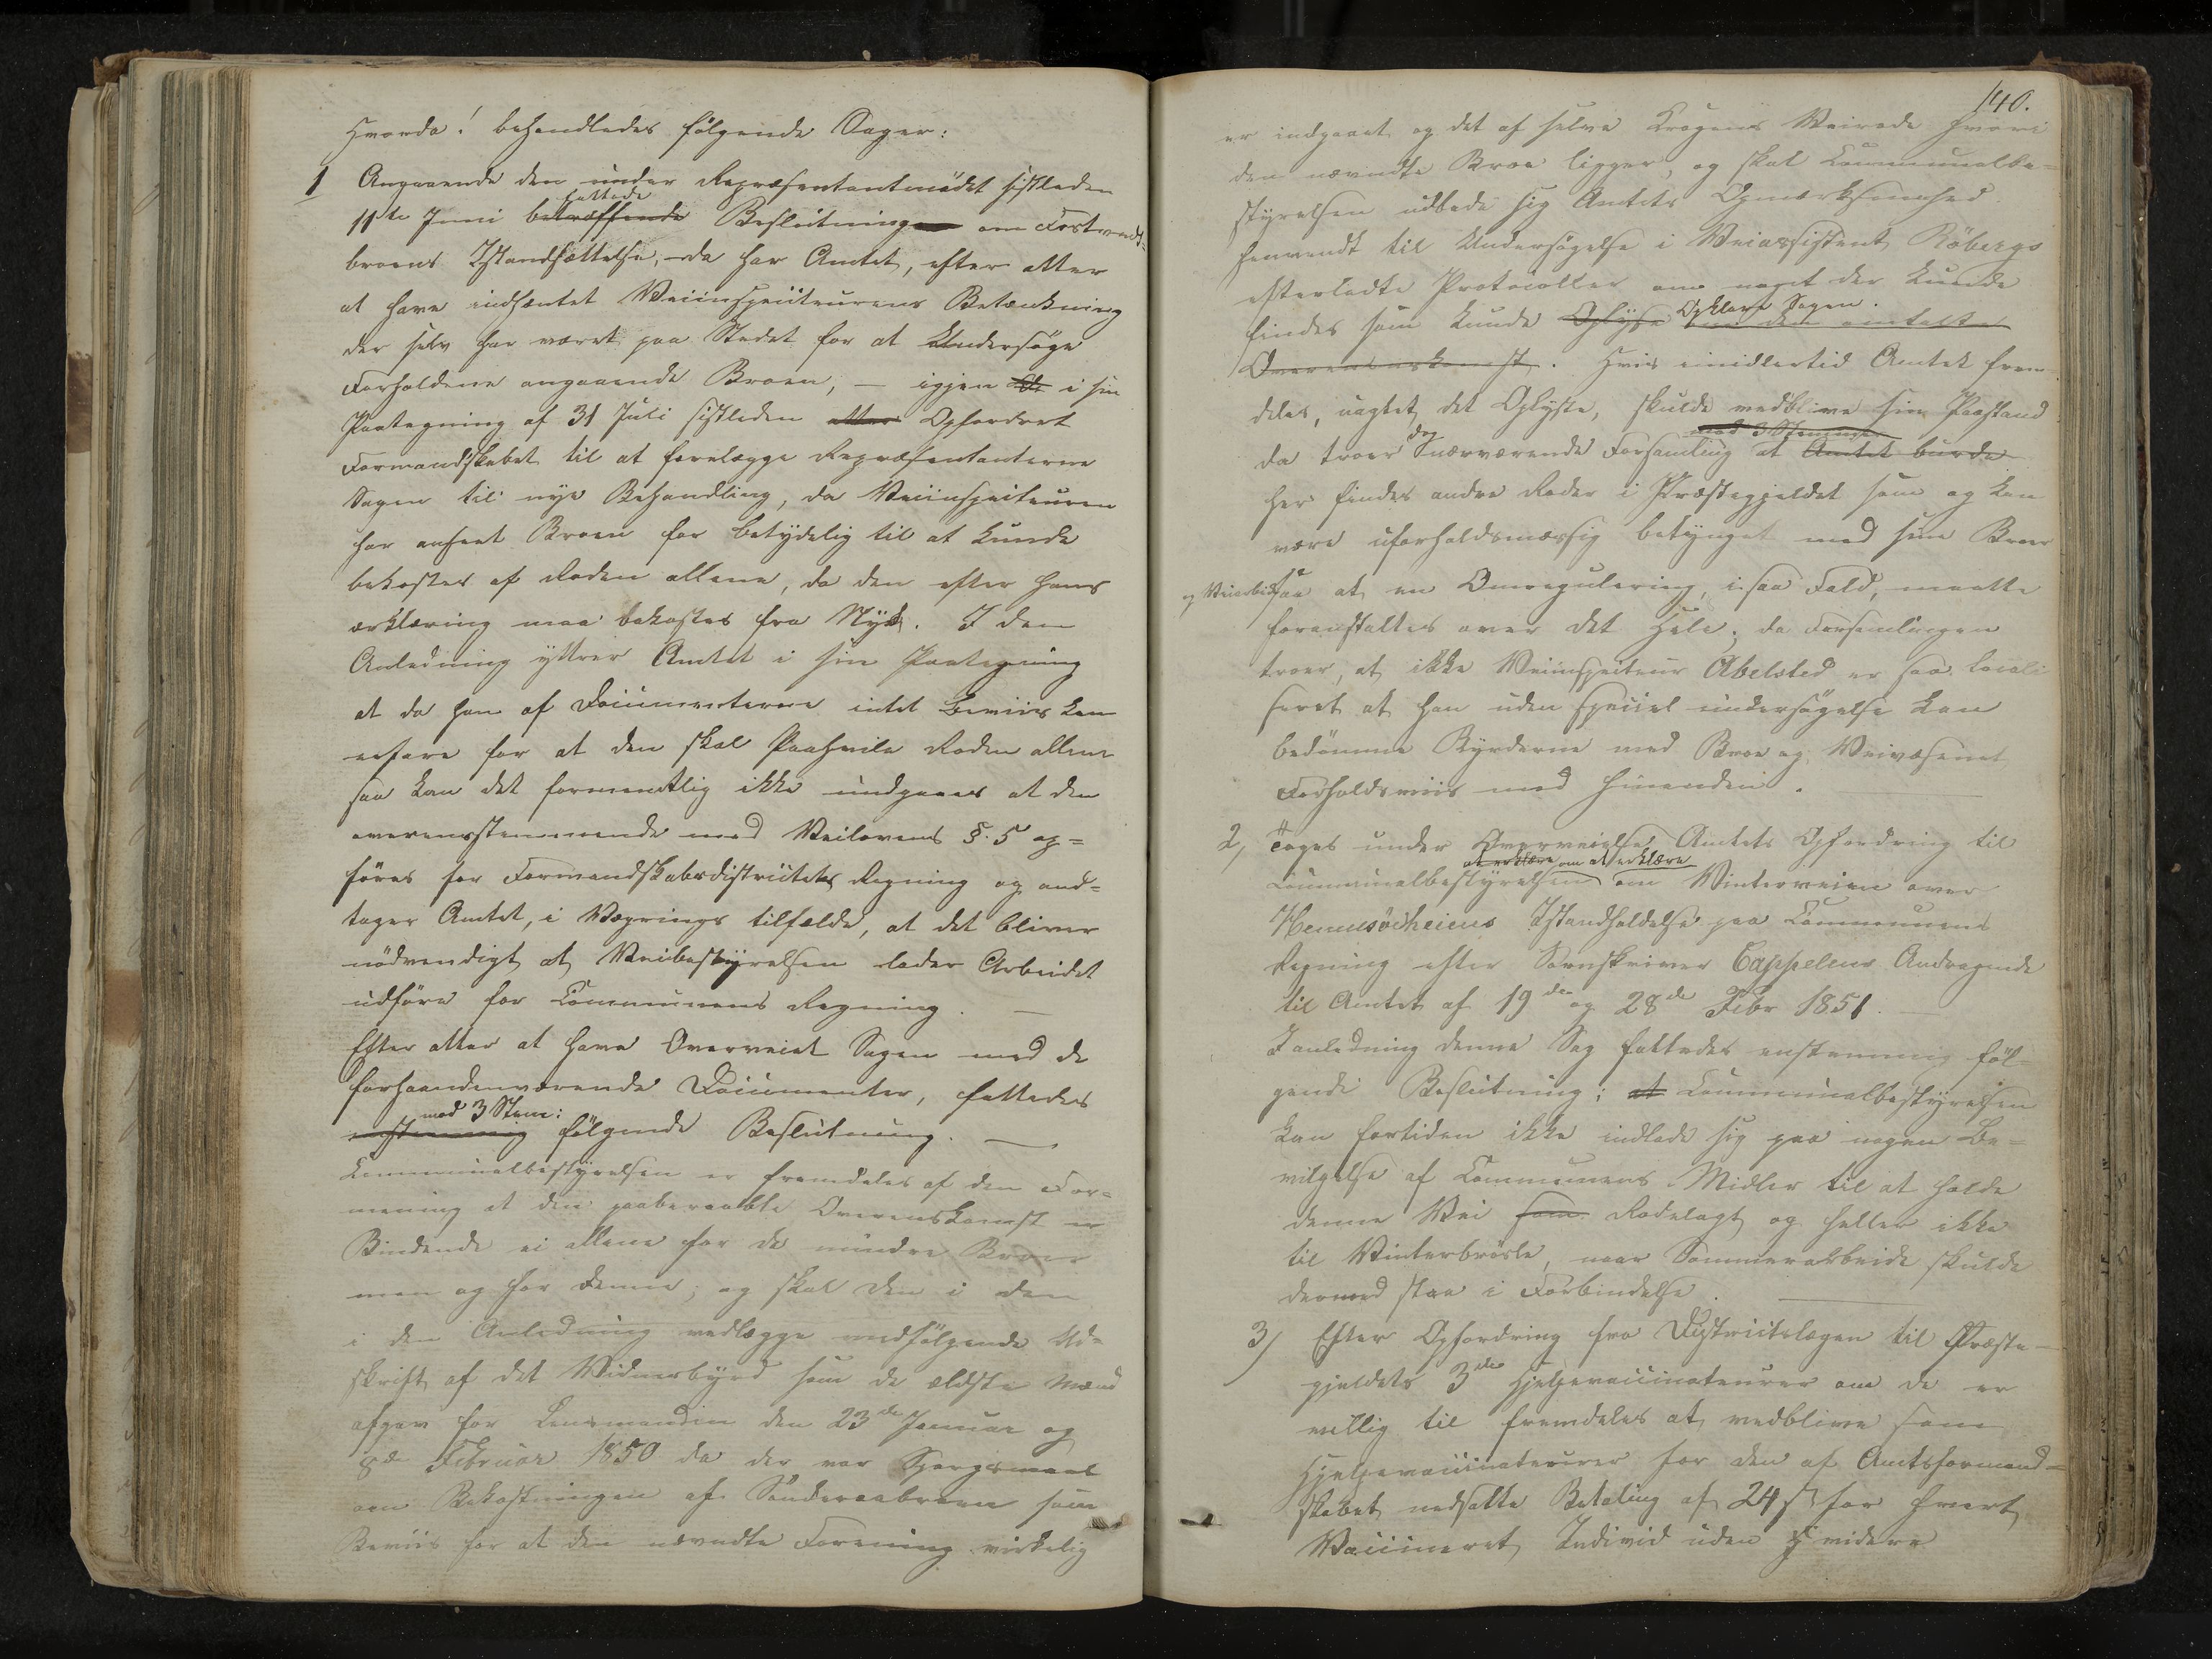 Hvorda! behandledes følgende Sager:
1 Angaaende den under Repræsentantmødet sistleden
11te Juni betræffende fattede Beslutninger om
broens Istandsættelse, da har Amtet, efter atter
at have indhæntet Veiinspecteurens Betænkning
der selv har været paa Stedet for at Undersøge
Forholdene angaaende Broen, — igjen i sin
Paategning af 31 Juli sistleden atter Opfordret
Formandskabet til at forelægge Repræsentanterne
Sagen til nye Behandling, da Veiinspecteuren
har anseet Broen for betydelig til at kunde
bekostes af Roden allene, da den efter hans
erklæring maa bekostes fra Nyt. I den
Anledning yttrer Amtet i sin Paategning
at da han af Documenterne intet Beviis kan
erfare for at den skal Paahvile Roden allene
saa kan det formentlig ikke undgaaes at den
overensstemmende med Veilovens §. 5 op=
føres for Formandskabsdistrictets Regning og and=
tager Amtet, i Vægrings tilfælde, at det bliver
nødvendigt at Veibestyrelsen lader Arbeidet
udføre for Communens Regning. —
Efter atter at have Overveiet Sagen med de
forhaandenværende Documenter, fattedes
med 3 Stem:
enstemmig følgende Beslutning. —
Communalbestyrelsen er fremdeles af den For=
mening at den paaberaabte Overenskomst er
Bindende ei allene for de mindre Broer
men og for denne; og skal den i den
i den Anledning vedlægge medfølgende Ud=
skrift af det Vidnesbyrd som de ældste Mænd
afgav for Lensmanden den 23de Januar og
8de Februar 1850 da der var Spørgsmaal
om Bekostningen af Sønderaabroen som
Beviis for at den nævndte Forening virkelig
140.
er indgaaet og det af selve Krogens Veirode hvori
den nævndte Broe ligger, og skal Communalbe=
styrelsen udbede sig Amtets Opmærksomhed
henvendt til Undersøgelse i Veiassistent Röbergs
efterladte Protocoller om noget der kunde
findes som kunde Oplyse Opklare Sagen. om den omtalte
Overenskomst. Hvis imidlertid Amtet frem
deles, uagtet det Oplyste, skulde vedblive sin Paastand
med 3 Stemmer
da troer dog Nærværende Forsamling at Amtet burde
her findes andre Roder i Præstegjeldet som og kan
være uforholdsmæssig betynget med sine Broer
og saa at en Omregulering, i saa Fald, maatte
foranstaltes over det Hele; da Forsamlingen
troer, at ikke Veiinspecteur Abelsted er saa locali
seret at han uden speciel undersøgelse kan
bedømme Byrderne med Broe og Veivæsenet
Forholdsviis med hinanden.
2, Toges under Overveielse Amtets Opfordring til
at erklære om at erklære
Communalbestyrelsen om Vinterveien over
Istandholdelse paa Communens
Regning efter Sorenskriver Cappelens Andragende
til Amtet af 19de og 28de Febr 1851. —
I anledning denne Sag fattedes enstemmig føl
gende Beslutning; at Communalbestyrelsen
kan fortiden ikke indlade sig paa nogen Be=
vilgelse af Communens Midler til at holde
denne Vei som Rodelagt og heller ikke
til Vinterbrøite, naar Sommerarbeide skulde
dermed staa i Forbindelse.
3) Efter Opfordring fra Districtslægen til Præste—
gjeldets 3de Hjelpevaccinateurer om de er
villig til fremdeles at vedblive som
Hjelpevaccinateurer for den af Amtsformand=
skabet nedsatte Betaling af 24 ß for hvert
Vaccineret Individ uden videre